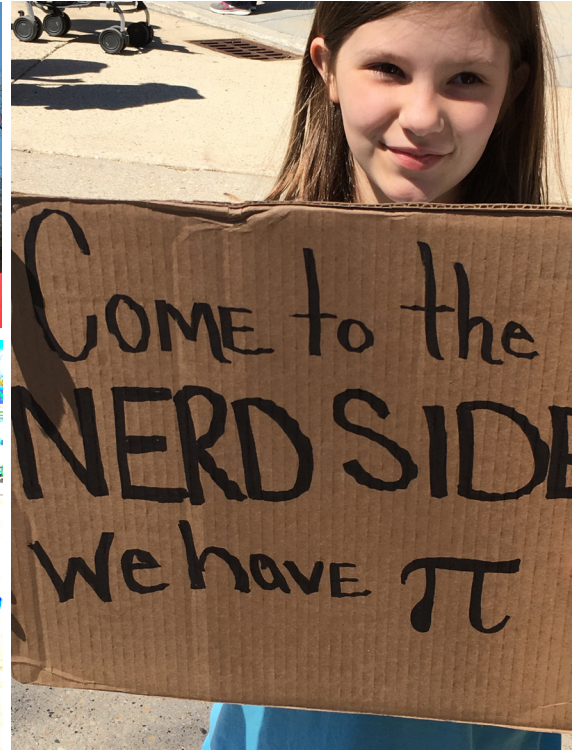 COME to the
NERD SIDE
We havE π